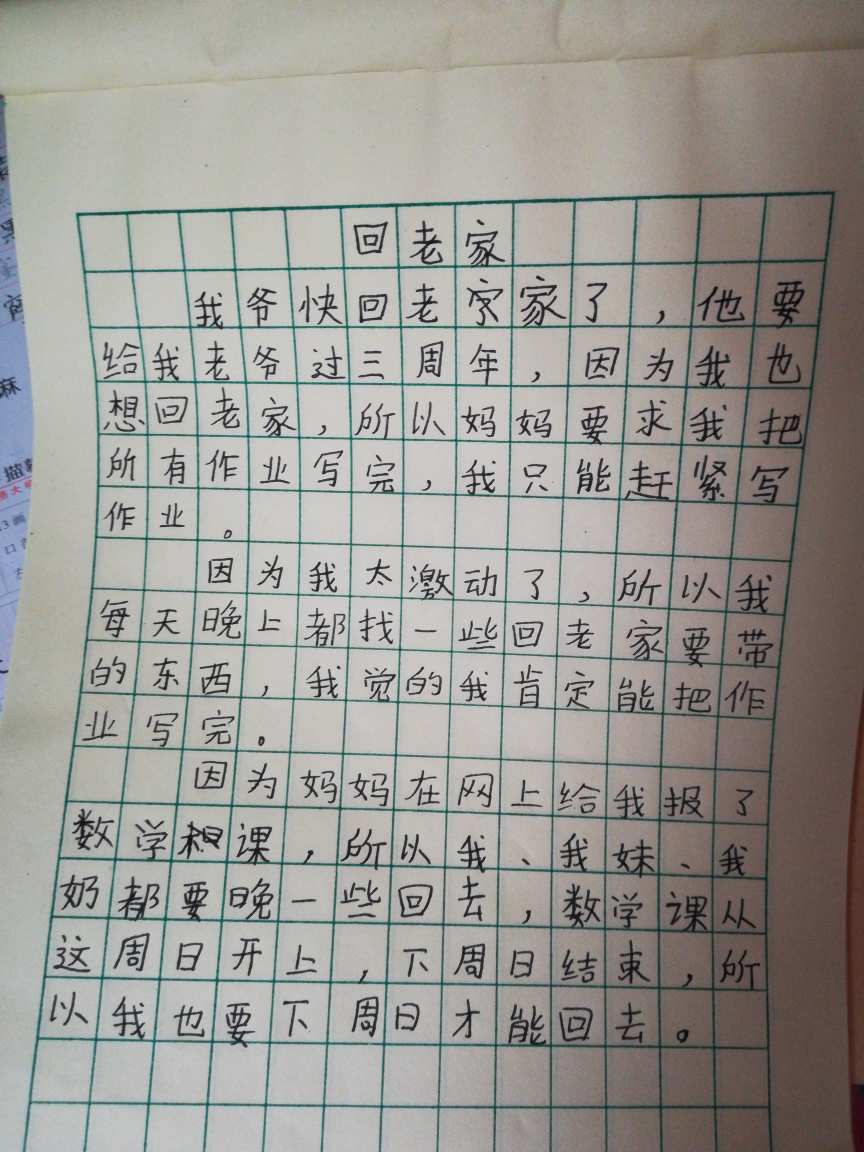 回老家
我爷快回老家家了，他要
给我老爷过三周年，因为我也
想回老家，所以妈妈要求我把
所有作业写完，我只能赶紧写
作业。
因为我太激动了，所以我
每天晚上都找一些回老家要带
的东西，我觉的我肯定能把作
业写完。
因为妈妈在网上给我报了
数学课，所以我、我妹、我
奶都要晚一些回去，数学课从
这周日开上，下周日结束，所
以我也要下周日才能回去。